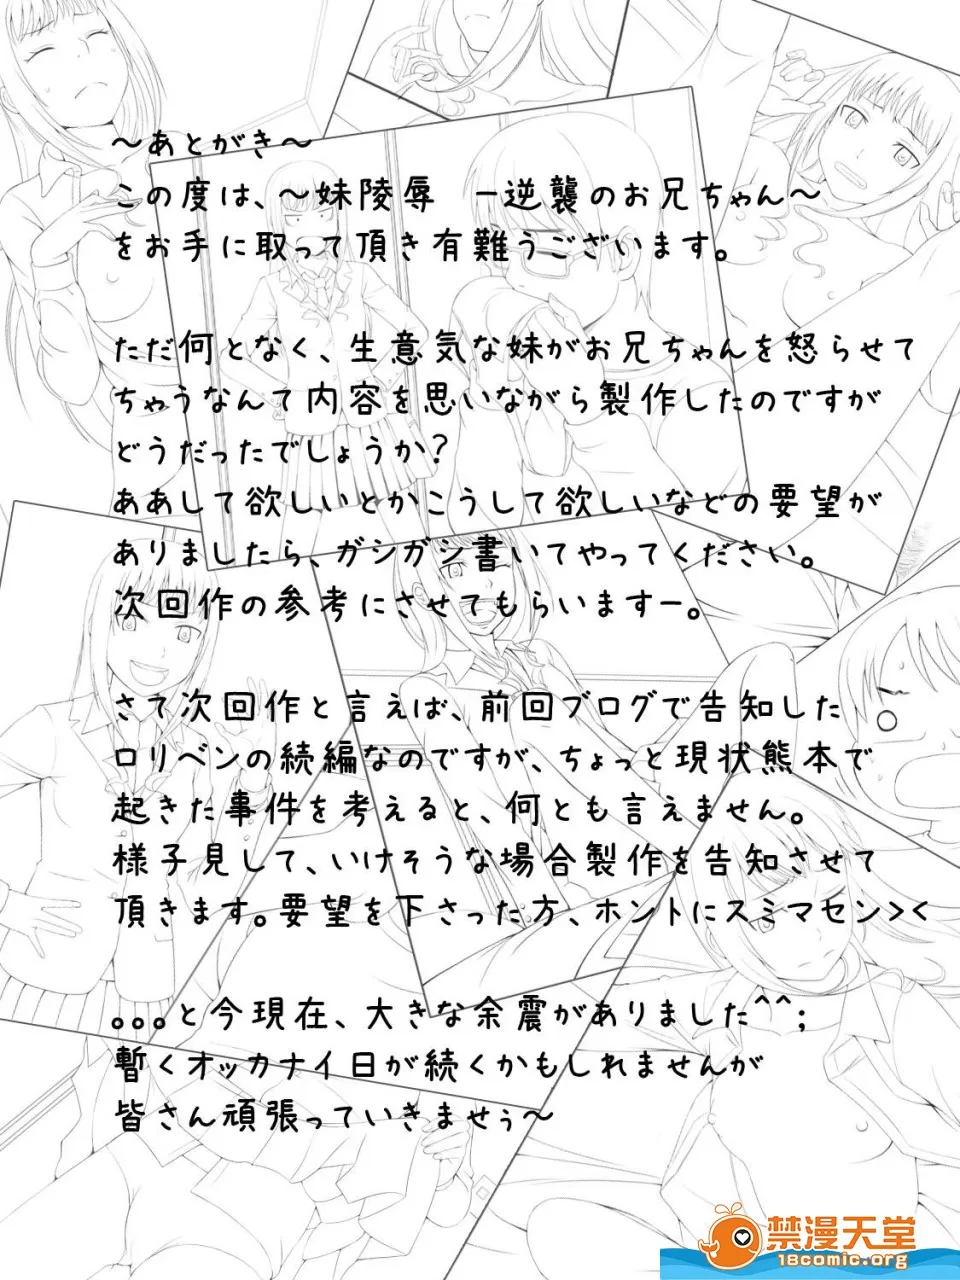 ～あとがき～
この度は、～妹陵辱　ー逆襲のお兄ちゃん～
をお手に取って頂き有難うございます。
ただ何となく、生意気な妹がお兄ちゃんを怒らせて
ちゃうなんて内容を思いながら製作したのですが
どうだったでしょうか?
ああして欲しいとかこうして欲しいなどの要望が
ありましたら、ガシガシ書いてやってください。
次回作の参考にさせてもらいますー。
さて次回作と言えば、前回ブログで告知した
ロリベンの続編なのですが、ちょっと現状熊本で
起きた事件を考えると、何とも言えません。
様子見して、いけそうな場合製作を告知させて
頂きます。要望を下さった方、ホントにスミマセン><
。。。と今現在、大きな余震がありました^^;
暫くオッカナイ日が続くかもしれませんが
皆さん頑張っていきませぅ～
禁漫天堂
18comic.org